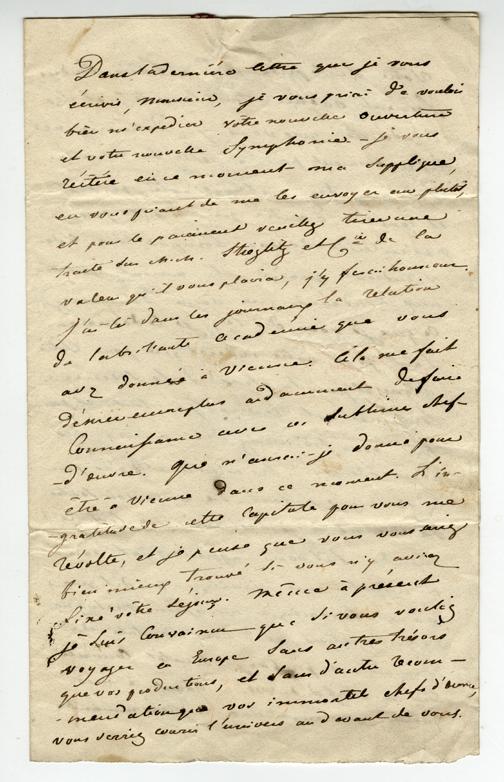 Dans la dernière lettre que je vous
écrivis, Monsieur, je vous priai de vouloir
bien m'expedier votre nouvelle ouverture
et votre nouvelle Symphonie — je vous
réitère en ce moment ma supplique,
en vous priant de me les envoyer au plutôt,
et pour le paiement veuillez tirer une
traite sur Stieglitz et Cie de la
valeur qu'il vous plaira, j'y ferai honneur.
J'ai lû dans les journaux la relation
de la brillante académie que vous
avz donnée à Vienne. Cela me fait
désirer encore plus ardamment de faire
Connaissance avec ce Sublime chef
-d'œuvre. Que n'aurais-je donné pour
être à Vienne dans ce moment. L'in-
gratitude de cette Capitale pour vous me
révolte, et je pense que vous vous seriez
bien mieux trouvé si vous n'y aviez
fixé vôtre Séjour. Même à présent
je suis Convaincu que si vous vouliez
voyager en Europe sans autres trésors
que vos productions, et sans d'autre recom-
-mendation que vos immortels chefs d'œuvre,
vous verriez courir l'univers au devant de vous.